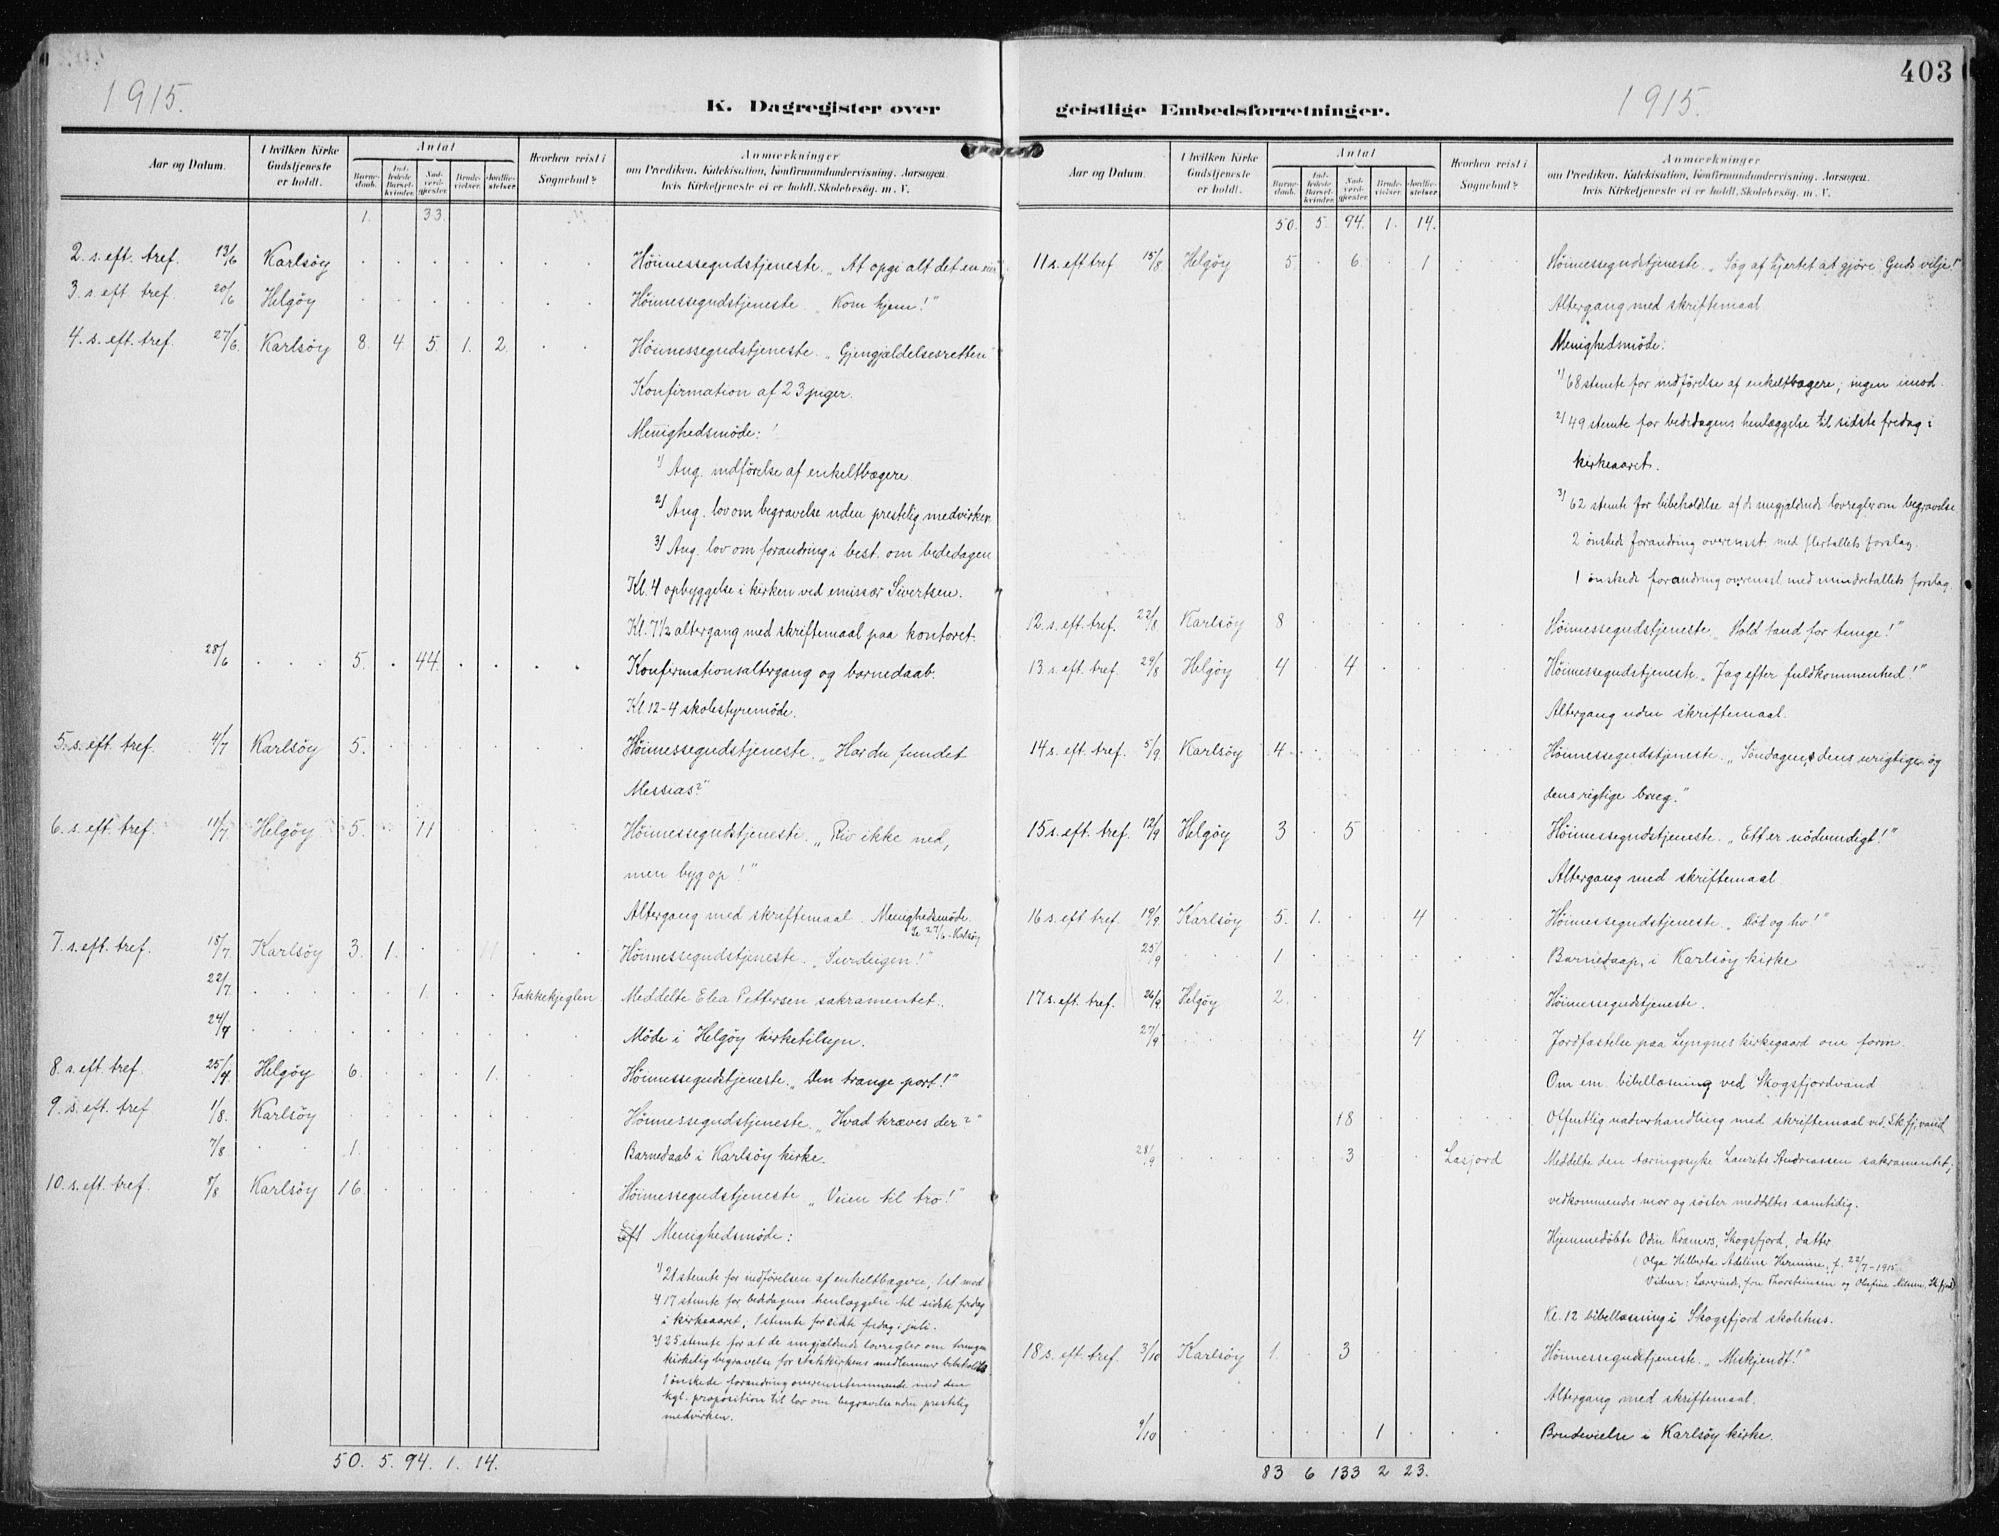 403
1915.
K. Dagregister over
Aar og Datum.
I hvilken Kirke Gudstjeneste er holdt.
Antal
Barnedaab. Indledede Barselkvinder. Nadverdgjester. Brudevielser. Jordfæstelser.
Hvorhen reist i Sognebud?
Anmærkninger
om Prædiken. Katekisation, Konfirmandundervisning. Aarsagen,
hvis Kirketjeneste ei er holdt. Skolebesøg. m. V.
1. 33.
2. s. eft. tref. 13/6 Karlsöy Höimessegudstjeneste. „At opgi alt det en eier"
3. s. eft tref. 20/6 Helgöy Höimessegudstjeneste „Kom hjem!"
4. s. eft. tref. 27/6 Karlsöy 8. 4. 5. 1. 2. Höimessegudstjeneste. „Gjengjældelsesretten"
Konfirmation af 23 piger.
Menighedsmöde:
1) Ang. indförelse af enkeltbægere.
2) Ang. lov om begravelse uden prestelig medvirken
3) Ang. lov om forandring i best. om bededagen
Kl. 4 opbyggelse i kirken ved emissær Sivertsen.
Kl. 7 1/2 altergang med skriftemaal paa kontoret.
28/6 5. 44. Konfirmationsaltergang og barnedaab.
Kl 12-4 skolestyremöde.
5. s. eft. tref. 4/7 Karlsöy 5. Höimessegudstjeneste. „Har du fundet
Messias?"
6. s. eft. tref. 11/7 Helgöy 5. 11 Höimessegudstjeneste. „Riv ikke ned,
men byg op!"
Altergang med skriftemaal. Menighedsmöde.
Se 27/6-Karlsöy
7. s. eft. tref. 18/7 Karlsöy 3. 1. 11 Höimessegudstjeneste. „Surdeigen!"
22/7 1. Fakkekjeglen Meddelte Elea Pettersen sakramentet.
24/7 Möde i Helgöy kirketilsyn.
8. s. eft. tref. 25/7 Helgöy 6. 1. Höimessegudstjeneste. „Den trange port!"
9. s. eft. tref 1/8 Karlsöy Höimessegudstjeneste. „Hvad kræves der?"
7/8 1. Barnedaab i Karlsöy kirke.
10. s. eft. tref. 8/8 Karlsöy 16. Höimessegudstjeneste „Veien til tro!"
Menighedsmöde:
1) 21 stemte for indförelsen af enkeltbægere, 1 st. mod
17 stemte for bededagens henlæggelse til sidste fredag
i kirkeaaret, 1 stemte for sidte fredag i juli.
3) 25 stemte for at de nugjældende lovregler om tvungen
kirkelig begravelse for statskirkens medlemmer bibeholdes
1 önskede forandring overensstemmende med den
kgl. proposition til lov om begravelse uden prestelig
medvirken.
50. 5. 94. 1. 14.
1915.
geistlige Embedsforretninger.
Aar og Datum.
I hvilken Kirke Gudstjeneste er holdt.
Antal
Barnedaab. Indledede Barselkvinder. Nadverdgjester. Brudevielser. Jordfæstelser.
Hvorhen reist i Sognebud?
Anmærkninger
om Prædiken. Katekisation, Konfirmandundervisning. Aarsagen,
hvis Kirketjeneste ei er holdt. Skolebesøg. m. V.
50. 5. 94. 1. 14.
11 s. eft tref 15/8 Helgöy 5. 6. 1 Höimessegudstjeneste „Søg af hjertet at gjöre Guds vilje!"
Altergang med skriftemaal
Menighedsmöde:
1) 68 stemte for indförelse af enkeltbægere; ingen imod.
2) 49 stemte for bededagens henlæggelse til sidste fredag i
kirkeaaret.
3) 62 stemte for bibeholdelse af de nugjældende lovregler om begravelse
2 önskede forandring overensst med flertallets forslag.
1 önskede forandring overensst med mindretallets forslag.
12. s. eft. tref. 22/8 Karlsöy 8 Höimessegudstjeneste „Hold tand for tunge!"
13. s. eft. tref. 29/8 Helgöy 4 4 Höimessegudstjeneste. „Jag efter fuldkommenhed!"
Altergang uden skriftemaal.
14 s. eft. tref. 5/9 Karlsöy 4 Höimessegudstjeneste. „Söndagen, dens urigtige og
dens rigtige brug."
15 s. eft. tref. 12/9 Helgöy 3 5 Höimessegudstjeneste. „Ett er nödvendigt!"
Altergang med skriftemaal
16 s. eft tref 19/9 Karlsöy 5. 1. 4 Höimessegudstjeneste. „Död og liv!"
25/9 1 Barnedaap, i Karlsöy kirke
17 s. eft. tref. 26/9 Helgöy 2. Höimessegudstjeneste.
27/9 4 Jordfæstelse paa Lyngnes kirkegaard om form.
Om em. bibellæsning ved Skogsfjordvand
18 Offentlig nadverhandling med skriftemaal ved Skfj.vand
28/9 3 Lasjord Meddelte den tæringssyke Laurits Andreassen sakramentet;
vedkommendes mor og söster meddeltes samtidig.
Hjemmedöbte Odin Kramers, Skogsfjord, datter
(Olga Hilberta Adeline Hermine, f. 22/7-1915.
Vidner: Lærerinde, fru Thorsteinsen og Olufine Nilsen, Skfjord)
Kl. 12 bibellæsning i Skogsfjord skolehus.
18 s. eft. tref. 3/10 Karlsöy 1. 3 Höimessegudstjeneste. „Miskjendt!"
Altergang med skriftemaal.
9/10 1 Brudevielse i Karlsöy kirke.
83 6 133 2 23.